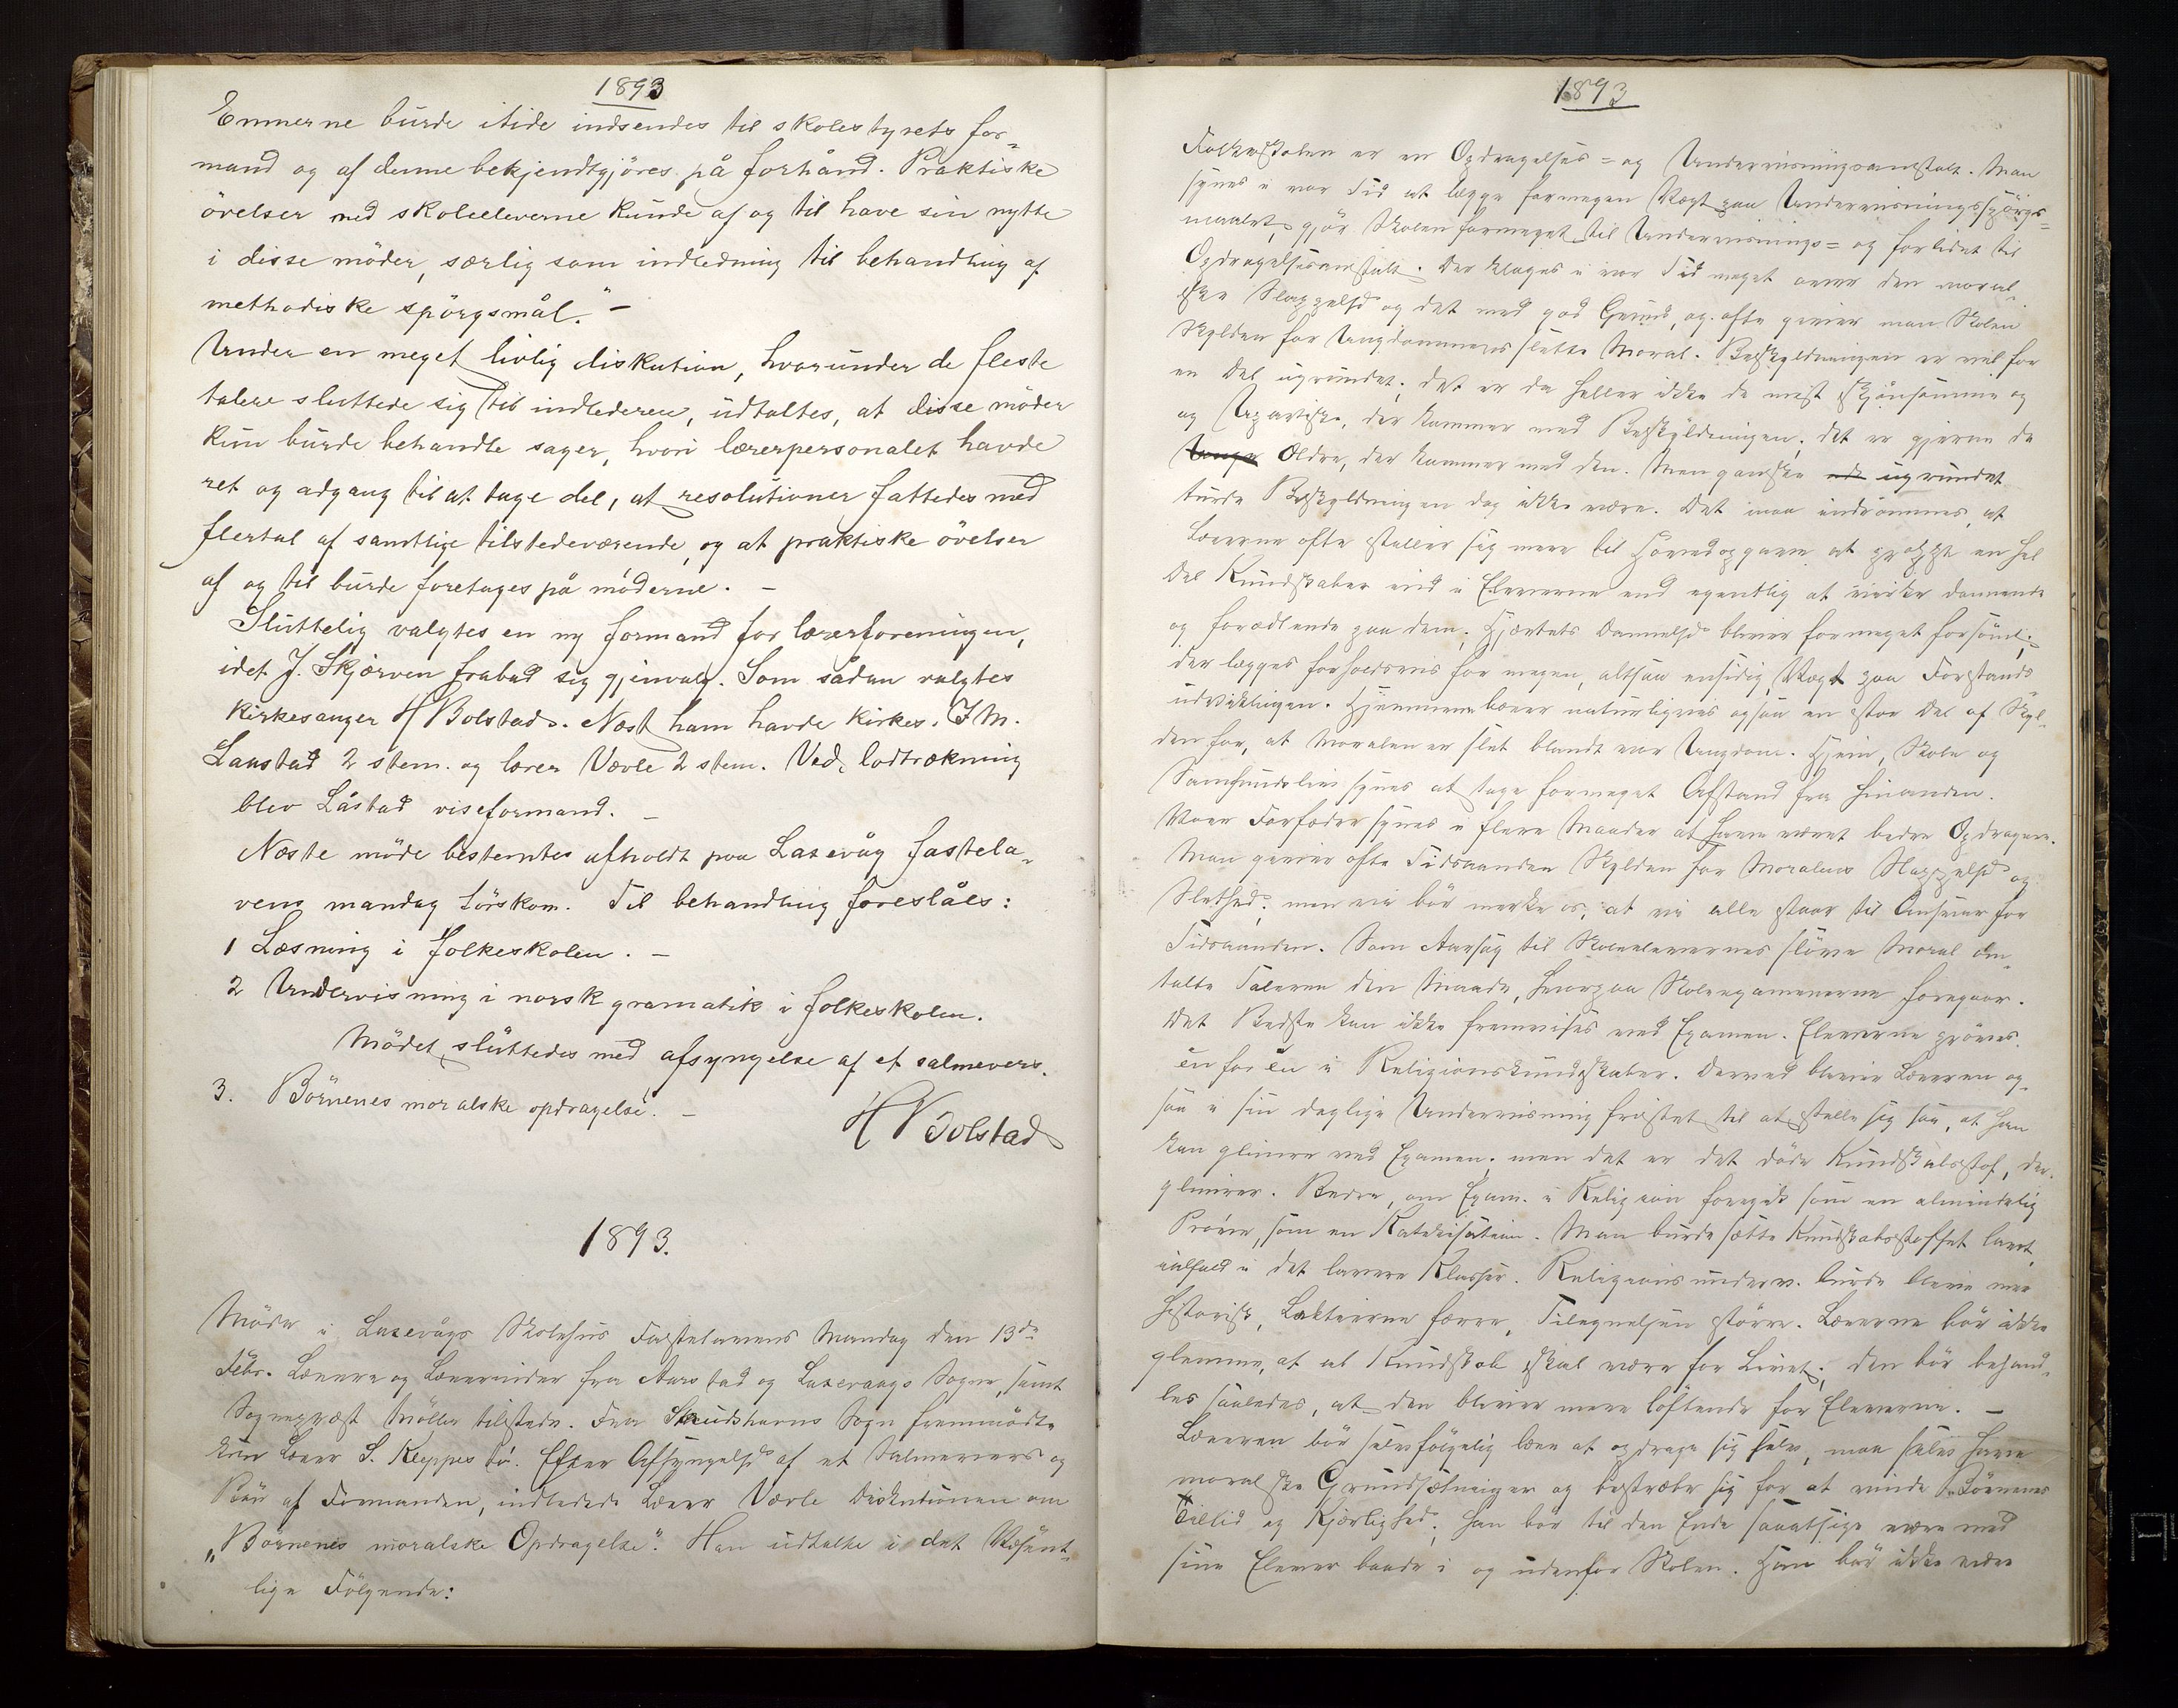 1893
Emnerne burde itide indsendes til skolestyrets for-
mand og af denne bekjendtgjöres på forhånd. Praktiske
övelser med skoleeleverne kunde af og til have sin nytte
i disse möder, særlig som indledning til behandling af
methodiske spörgsmål." –
Under en meget livlig diskution, hvorunder de fleste
talere sluttede sig til indlederen, udtaltes, at disse möder
kun burde behandle sager, hvori lærerpersonalet havde
ret og adgang til at tage del, at resolutioner fattedes med
flertal af samtlige tilstedeværende, og at praktiske övelser
af og til burde foretages på möderne. –
Sluttelig valgtes en ny formand for lærerforeningen,
idet J. Skjörven frabad sig gjenvalg. Som sådan valgtes
kirkesanger H Bolstad. Næst ham havde kirkes. I M.
Laastad 2 stem. og lærer Værle 2 stem. Ved lodtrækning
blev Låstad viseformand. –
Næste möde bestemtes afholdt paa Laxevåg fastela-
vens mandag förstkom. Til behandling foreslåes:
1 Læsning i folkeskolen. –
2 Undervisning i norsk gramatik i folkeskolen.
Mödet sluttedes med afsyngelse af et salmevers.
3. Börnenes moralske opdragelse. –
H Bolstad
1893.
Möde i Laxevågs Skolehus Fastelavens Mandag den 13de
Febr. Lærere og Lærerinder fra Aarstad og Laxevaags Sogne, samt
Sognepræst Möller tilstede. Fra Skudshavns Sogn fremmödte
kun Lærer S. Keppestö. Efter Afsyngelse af et Salmevers og
Bön af Formanden, indledede Lærer Værle Diskutionen om
„Börnenes moralske Opdragelse". Han udtalte i det Væsent-
lige Fölgende:
1893
Folkeskolen er en Opdragelses= og Undervisningsanstalt. Man
synes i vor Tid at lægge formegen Vægt paa Undervisningsspörgs=
maalet, gjör Skolen formeget til Undervisnings= og forlidet til
Opdragelsesanstalt. Der klages i vor Tid meget over den moral-
ske Slappelse og det med god Grund, og ofte giver man Skolen
Skylden for Ungdommens slette Moral. Beskyldningen er vel for
en Del ugrundet; det er da heller ikke de mest skjönsomme og
og Upartiske, der kommer med Beskyldningen; det er gjerne de
Unge Ældre, der kommer med den. Men ganske ugrundet
turde Beskyldningen dog ikke være. Det maa indrömmes, at
Lærerne ofte stiller sig mere til Hovedopgave at proppe en hel
Del Kundskaber ind i Eleverne end egentlig at virke dannende
og forædlende paa dem; Hjærtets Dannelse bliver formeget forsömt;
der lægges forholdsvis for megen, altsaa ensidig, Vægt paa Forstands
udviklingen. Hjemmene bærer naturligvis ogsaa en stor Del af Skyl-
den for, at Moralen er slet blandt vor Ungdom. Hjem, Skole og
Samfundsliv synes at tage formeget Afstand fra hinanden.
Vore Forfædre synes i flere Maader at have været bedre Opdragere.
Man giver ofte Tidsaanden Skylden for Moralens Slappelse og
Slethed; men vi bör merke os, at vi alle staar til Ansvar for
Tidsaanden. Som Aarsag til Skoleelevernes slöve Moral om-
talte Taleren den Maade, hvorpaa Skoleexamenerne foregaar.
Det Bedste kan ikke fremvises ved Examen. Eleverne pröves
én for én i Religionskundskaber. Derved bliver Læreren og-
saa i sin daglige Undervisning fristet til at stelle sig saa, at han
kan glimre ved Examen; men det er det döde Kundskabsstof, der
glimrer. Bedre, om Exam. i Religion foregik som en almindelig
Pröve, som en Katekisation. Man burde sætte Kundskabsstoffet lavt,
ialfald i det lavere Klasser. Religionsunderv. burde blive mer
historisk, Lektierne færre, Tilegnelsen större. Lærerne bör ikke
glemme, at al Kundskab skal være for Livet; den bör behand-
les saaledes, at den bliver mere löftende for Eleverne. –
Læreren bör selvfölgelig lære at opdrage sig selv, maa selv have
moralske Grundsætninger og bestræbe sig for at vinde Börnenes
Tillid og Kjærlighed; han bör til den Ende saavidt være med
sine Elever baade i og udenfor Skolen. Han bör ikke være